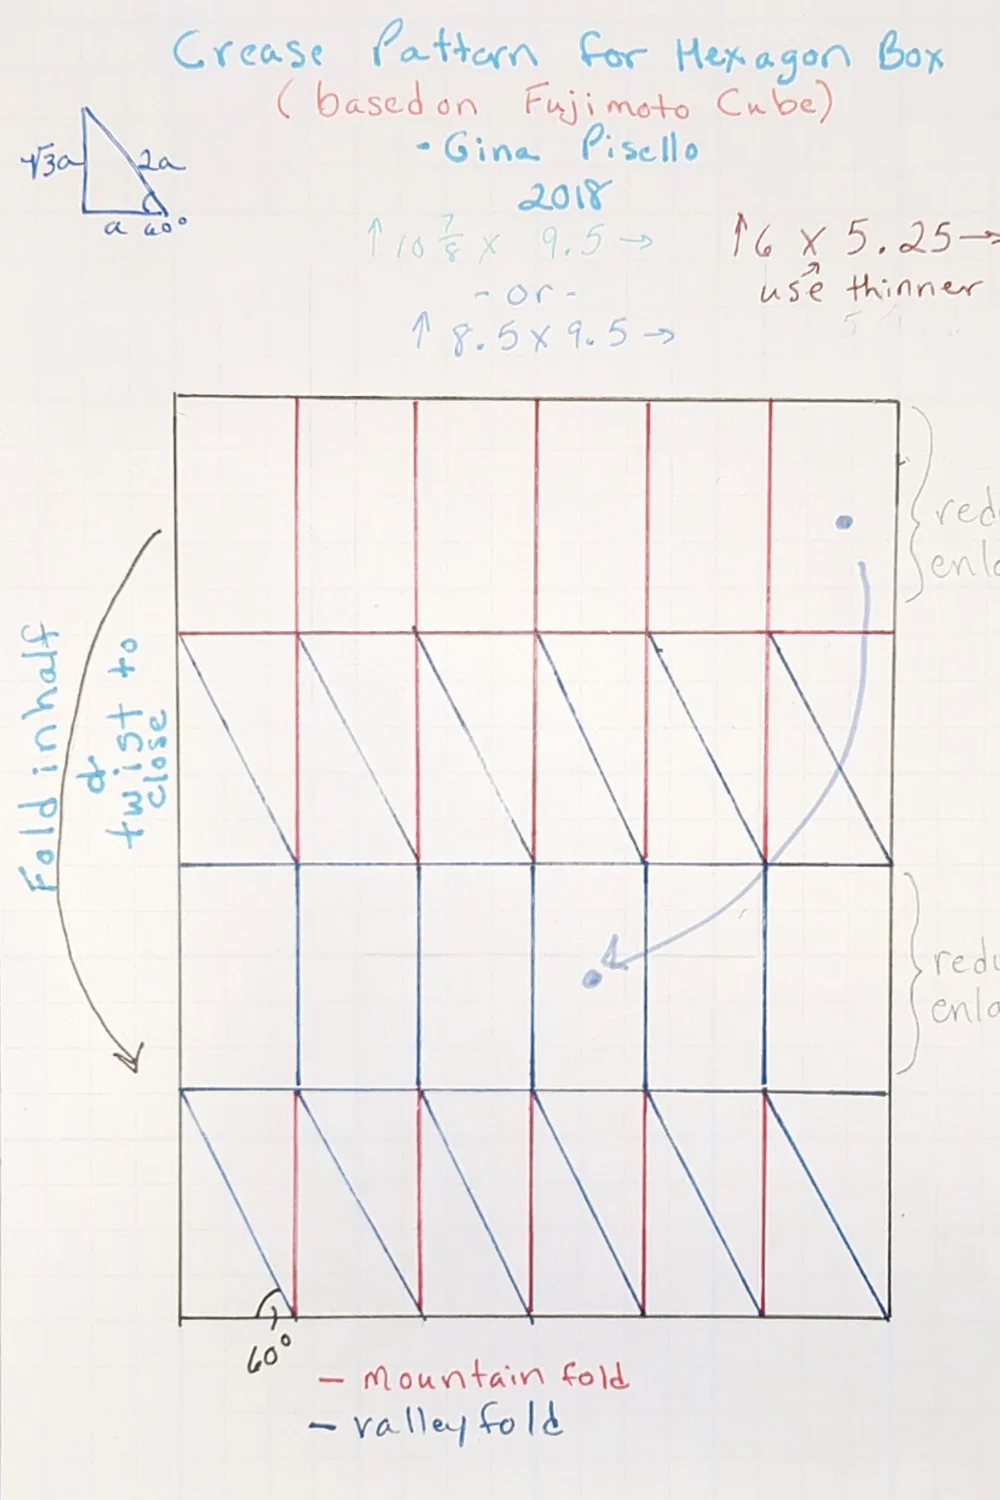 Crease Pattern for Hexagon Box
(based on Fujimoto Cube)
- Gina Pisello
2018
√3a
2a
a 60°
↑ 10 7/8 x 9.5 →
- or -
↑ 8.5 x 9.5 →
↑ 6 x 5.25 →
use thinner
Fold in half
&
twist to
close
60°
- mountain fold
- valley fold